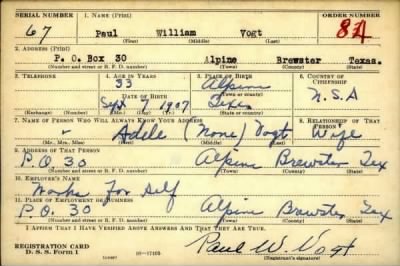 SERIAL NUMBER 1. NAME (Print) ORDER NUMBER
67 Paul William Vogt 84
(First) (Middle) (Last)
2. ADDRESS (Print)
P. O. Box 30 Alpine Brewster Texas.
(Number and street or R. F. D. number) (Town) (County) (State)
3. TELEPHONE 4. AGE IN YEARS 5. PLACE OF BIRTH 6. COUNTRY OF CITIZENSHIP
33 Alpine
DATE OF BIRTH (Town or county)
Sept 7 1907 Texas U.S.A
(Exchange) (Number) (Mo.) (Day) (Yr.) (State or country)
7. NAME OF PERSON WHO WILL ALWAYS KNOW YOUR ADDRESS 8. RELATIONSHIP OF THAT PERSON
Adele (None) Vogt Wife
(Mr., Mrs., Miss) (First) (Middle) (Last)
9. ADDRESS OF THAT PERSON
P.O. 30 Alpine Brewster Tex
(Number and street or R. F. D. number) (Town) (County) (State)
10. EMPLOYER'S NAME
Works For Self
11. PLACE OF EMPLOYMENT OR BUSINESS
P.O. 30 Alpine Brewster Tex
(Number and street or R. F. D. number) (Town) (County) (State)
I AFFIRM THAT I HAVE VERIFIED ABOVE ANSWERS AND THAT THEY ARE TRUE.
REGISTRATION CARD
D. S. S. Form 1 Paul W. Vogt
(Registrant's signature)